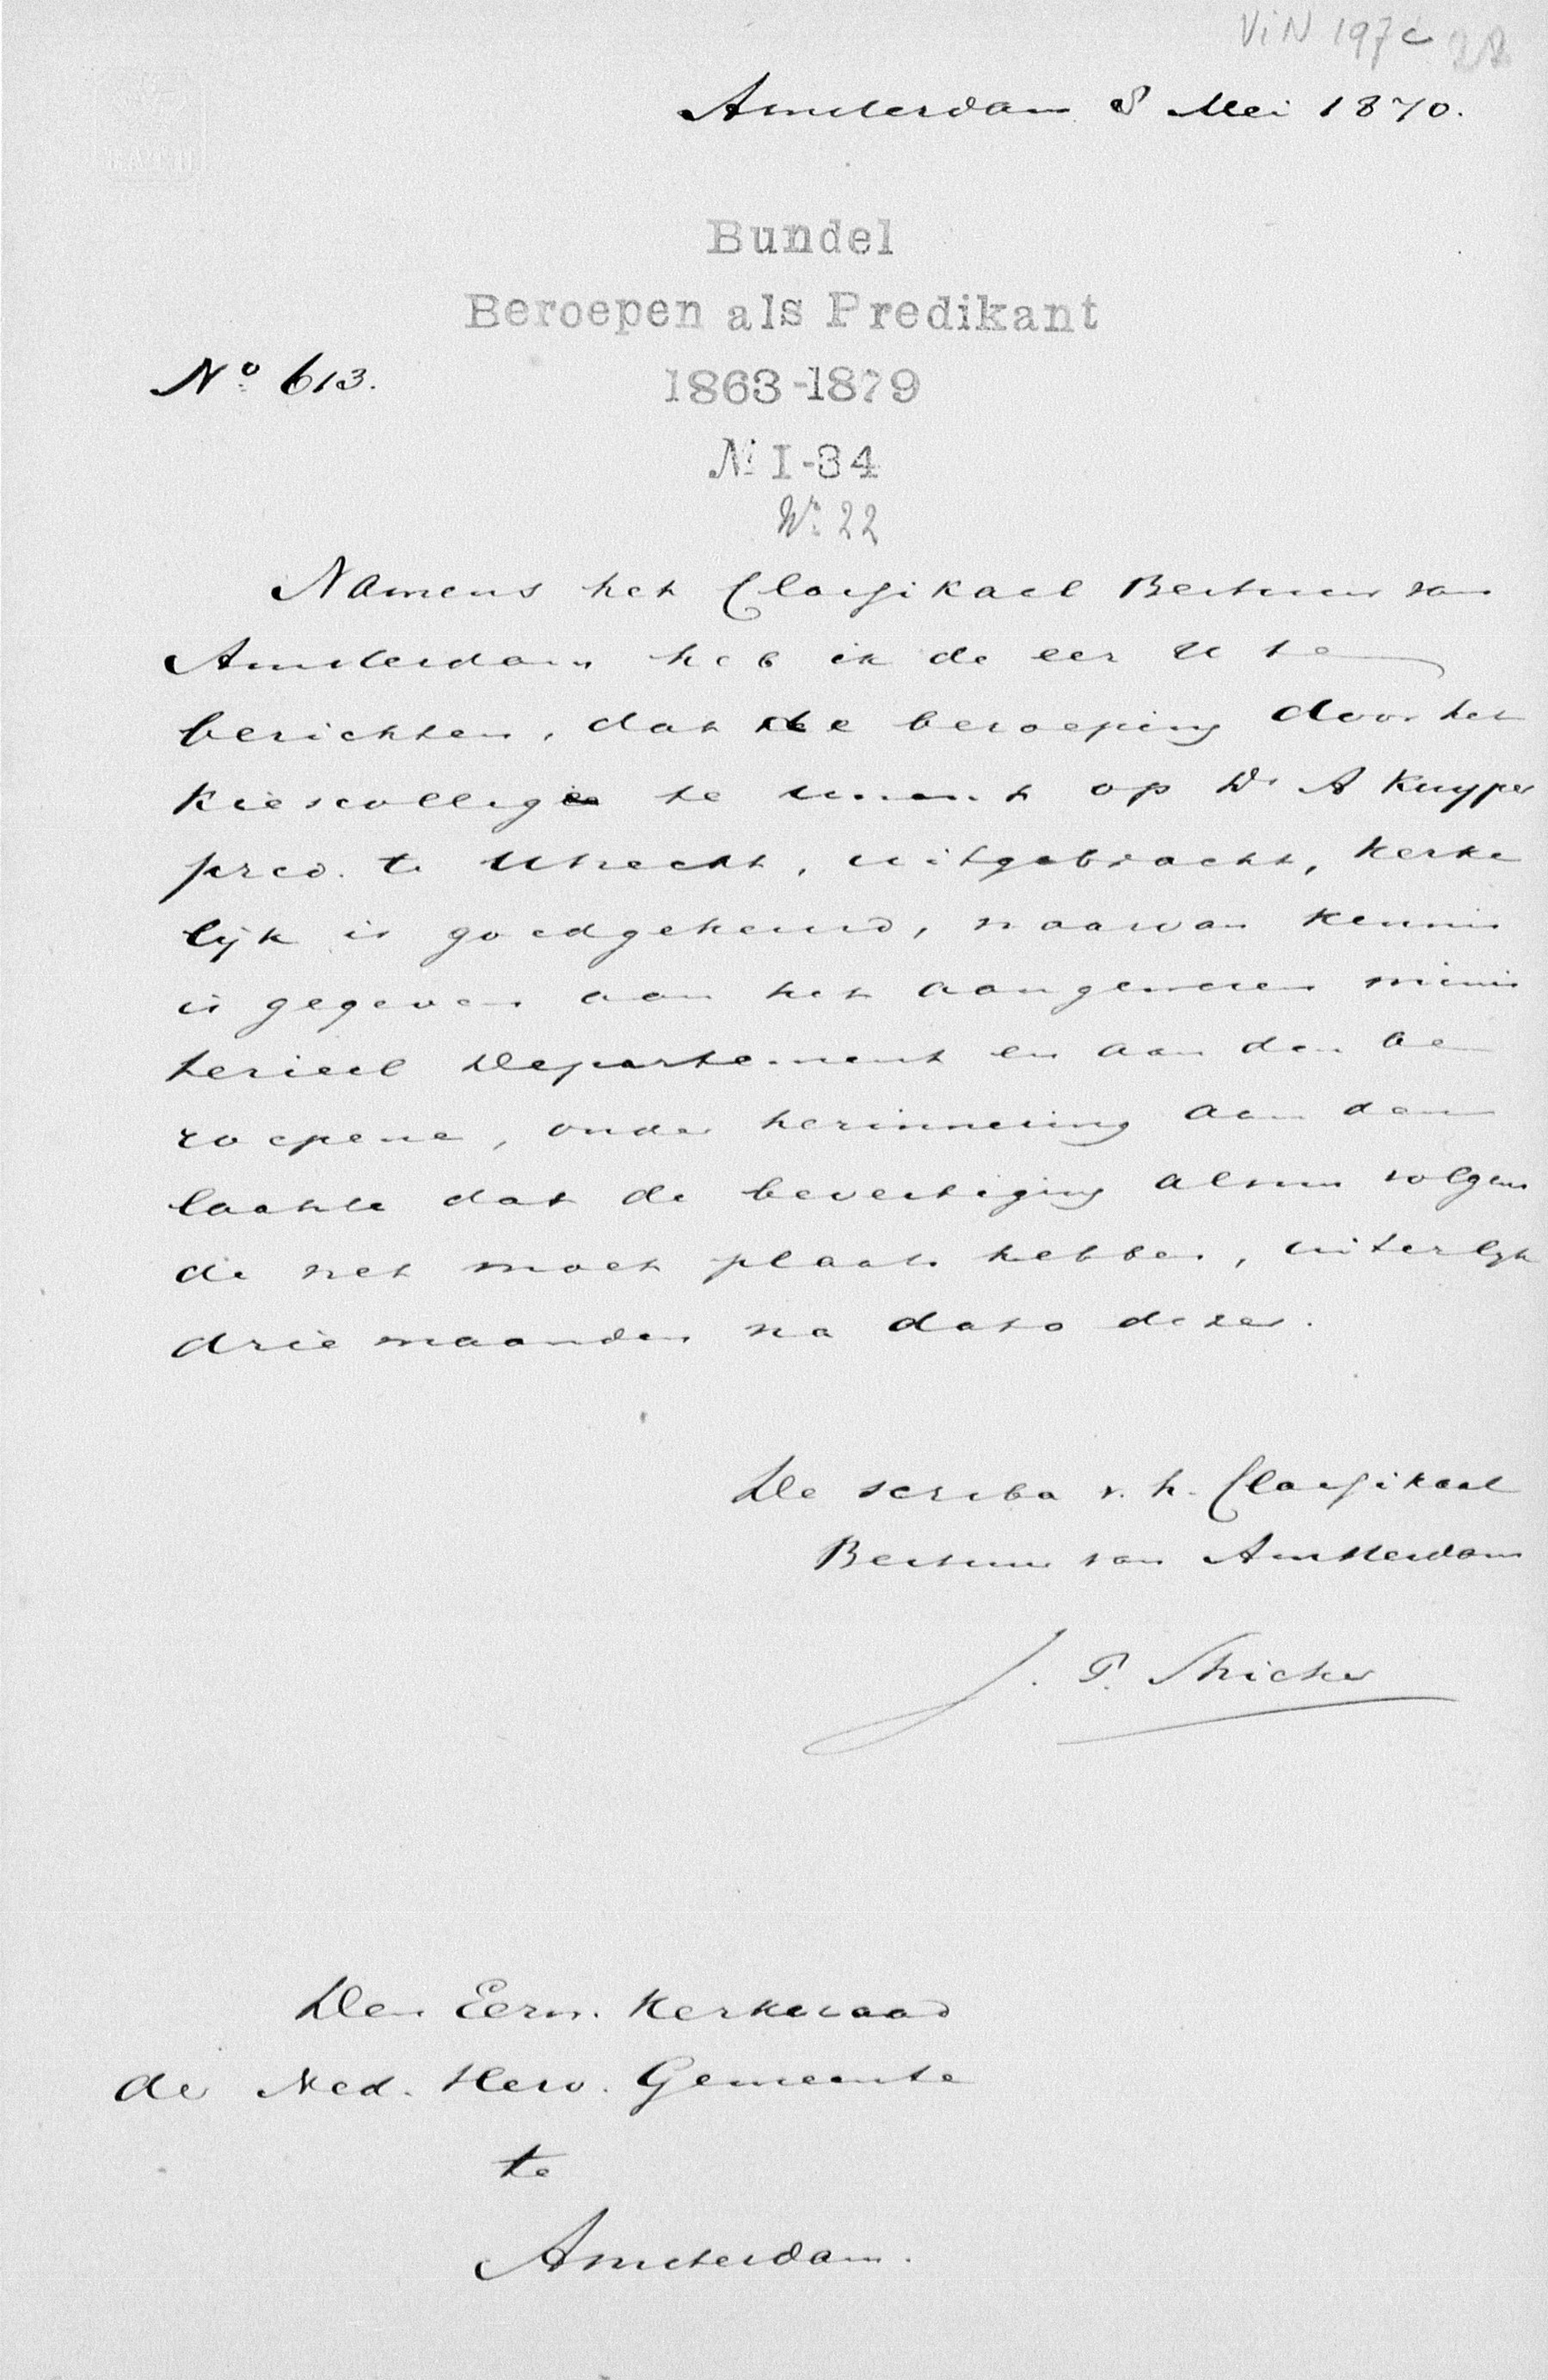 ViN 197c 22
Amsterdam 8 Mei 1870.
Bundel
Beroepen als Predikant
No 613.
1863-1879
No I-34
No 22
Namens het Classikaal Bestuur van
Amsterdam heb ik de eer U te
berichten, dat de beroeping door het
Kiescollegie te op Dr A Kuyper
pred. te Utrecht, uitgebracht, kerke
lijk is goedgekeurd, waarvan kennis
is gegeven aan het aangewezen minis
terieel Departement en aan den be
roepene, onder herinnering aan den
laatste dat de bevestiging alsnu volgens
de wet moet plaats hebben, uiterlijk
drie maanden na dato dezes.
De scriba v. h. Classikaal
Bestuur van Amsterdam
J. P. Stricker
Den Eerw. Kerkeraad
der Ned. Herv. Gemeente
te
Amsterdam.